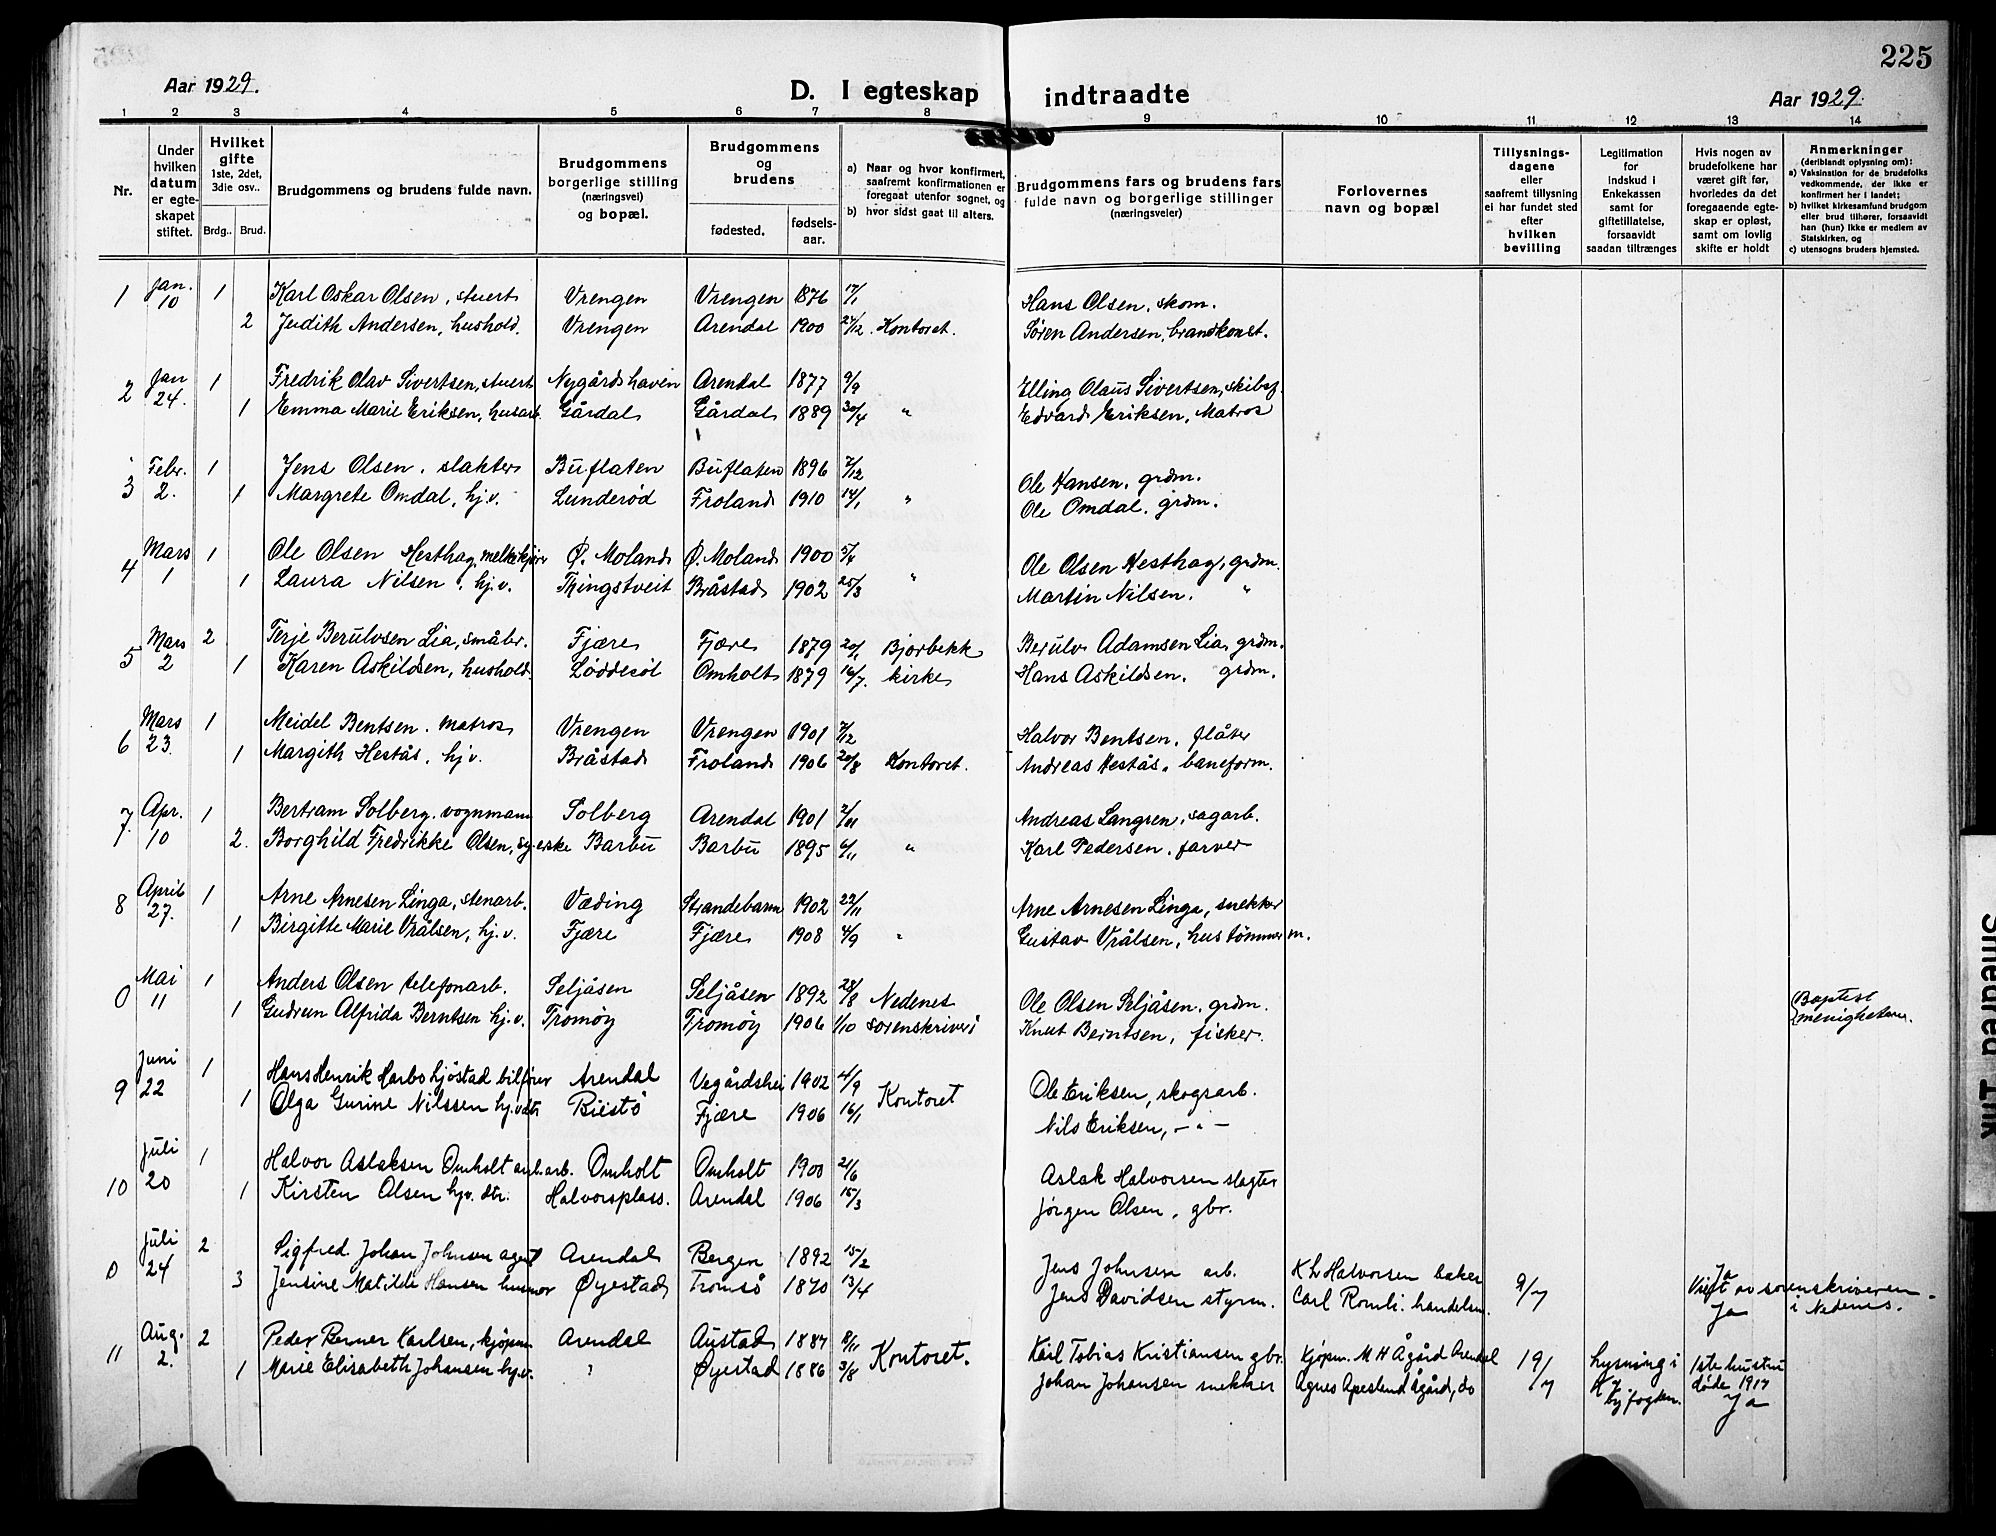 225
Aar 1929.
D. I egteskap indtraadte
Aar 1929.
1 2 3 4 5 6 7 8 9 10 11 12 13 14
Nr.
Under hvilken datum er egteskapet stiftet.
Hvilket gifte 1ste, 2det, 3die osv..
Brdg.. Brud.
Brudgommens og brudens fulde navn.
Brudgommens borgerlige stilling (næringsvei) og bopæl.
Brudgommens og brudens
fødested. fødsels-aar.
a) Naar og hvor konfirmert, saafremt konfirmationen er foregaat utenfor sognet, og
b) hvor sidst gaat til alters.
Brudgommens fars og brudens fars fulde navn og borgerlige stillinger (næringsveier)
Forlovernes navn og bopæl
Tillysnings-dagene eller saafremt tillysning ei har fundet sted efter hvilken bevilling
Legitimation for indskud i Enkekassen samt for giftetillatelse, forsaavidt saadan tiltrænges
Hvis nogen av brudefolkene har været gift før, hvorledes da det foregaaende egteskap er opløst, samt om lovlig skifte er holdt
Anmerkninger (deriblandt oplysning om):
a) Vaksination for de brudefolks vedkommende, der ikke er konfirmert her i landet;
b) hvilket kirkesamfund brudgom eller brud tilhører, forsaavidt han (hun) ikke er medlem av Statskirken, og
c) utensogns bruders hjemsted.
1 Jan. 10 1 Karl Oskar Olsen, stuert Vrengen Vrengen 1876 17/1 Hans Olsen, skom.
2 Judith Andersen, hushold. Vrengen Arendal 1900 24/12 Kontoret. Søren Andersen, brandkonst.
2 Jan 24. 1 Fredrik Olav Sivertsen, stuert Nygårdshaven Arendal 1877 9/9 Elling Olaus Sivertsen, skibsf.
1 Emma Marie Eriksen, husarb. Gårdal Gårdal 1889 30/4 " Edvard Eriksen, Matros
3 Febr. 2. 1 Jens Olsen, slakter Buflaten Buflaten 1896 7/12 Ole Hansen, grdm.
1 Margrete Omdal, hj.v. Lunderød Froland 1910 14/1 " Ole Omdal, grdm.
4 Mars 1 1 Ole Olsen Hesthag, melkekjører Ø. Moland Ø. Moland 1900 5/4 Ole Olsen Hesthag, grdm.
1 Laura Nilsen, hj.v. Thingstveit Bråstad 1902 25/3 " Martin Nilsen. "
5 Mars 2 2 Terje Berulvsen Lia, småbr. Fjære Fjære 1879 20/1 Bjorbekk Berulv Adamsen Lia, grdm.
1 Karen Askildsen, hushold. Løddesøl Omholt 1879 16/7. kirke Hans Askildsen. grdm.
6 Mars 23. 1 Meidel Bentsen. matros Vrengen Vrengen 1901 7/12 Halvor Bentsen, fløter
1 Margith Hestås, hj.v. Bråstad Froland 1906 20/8 Kontoret. Andreas Hestås, baneform.
7. Apr. 10 1 Bertram Solberg, vognmann Solberg Arendal 1901 2/11 Andreas Langren, sagarb.
2. Borghild Fredrikke Olsen, syerske Barbu Barbu 1895 6/11 " Karl Pedersen, farver
8 April 27. 1 Arne Arnesen Linga, stenarb. Væding Strandebarm 1902 23/11 Arne Arnesen Linga, snekker
1 Birgitte Marie Vrålsen, hj.v. Fjære Fjære 1908 4/9 " Gustav Vrålsen, hustømmerm.
0 Mai 11 1 Anders Olsen telefonarb. Seljåsen Seljåsen 1892 28/8 Nedenes Ole Olsen Seljåsen, grdm. Baptist
1 Gudrun Alfrida Berntsen hj.v. Tromøy Tromøy 1906 1/10 sorenskriveri Knut Berntsen, fisker. menigheten.
9 Juni 22 1 Hans Henrik Harbo hjøstad bilfører Arendal Vegårdshei 1902 4/9 Ole Eriksen, skogsarb.
1 Olga Gurine Nilssen hj.v.dtr Biestø Fjære 1906 16/1 Kontoret Nils Eriksen, - " -
10 Juli 20 1 Halvor Aslaksen Omholt anl.arb. Omholt Omholt 1900 21/6 Aslak Halvorsen slagter
1 Kirsten Olsen hjv. dtr. Halvorsplass. Arendal 1906 15/3 Jørgen Olsen, gbr.
0 Juli 24 2 Sigfred Johan Johnsen agent Arendal Bergen 1892 15/2 Jens Johnsen arb. K L Halvorsen baker 9/7 Ja Viet av sorenskriveren
3 Jensine Matilde Hansen husmor Øyestad Tromsø 1870 13/4 Jens Davidsen styrm. Carl Romli. handelsm. Ja i Nedenes.
11 Aug. 2. 2 Peder Berner Karlsen, kjøpm Arendal Austad 1887 8/11 Karl Tobias Kristiansen gbr. Kjøpm. M H Ågård Arendal 19/7 Lysning i 1ste hustru
1 Marie Elisabeth Johansen hj.v. " Øyestad 1886 3/8 Kontoret. Johan Johansen snekker Agnes Apesland Ågård, do byfogden. døde 1917 Ja
Smedred Ink